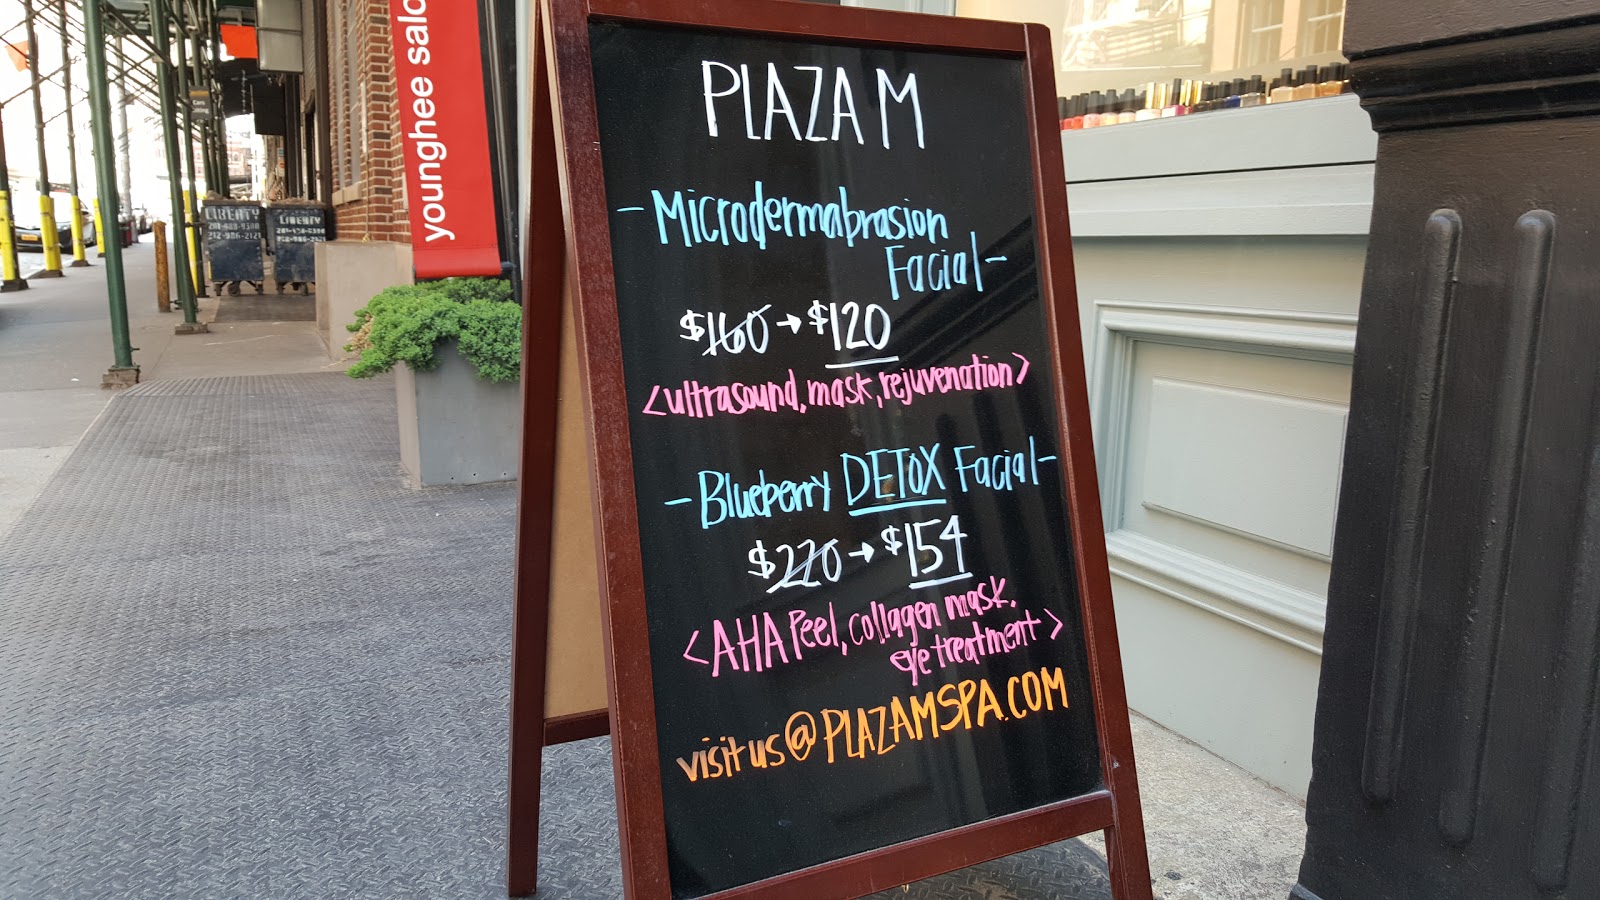 PLAZA M
- Microdermabrasion
Facial -
$160 → $120
<ultrasound, mask, rejuvenation>
- Blueberry DETOX Facial -
$220 → $154
<AHA Peel, collagen mask,
eye treatment>
visit us @ PLAZAMSPA.COM
younghee salo
LIBERTY
LIBERTY
212-986-2121